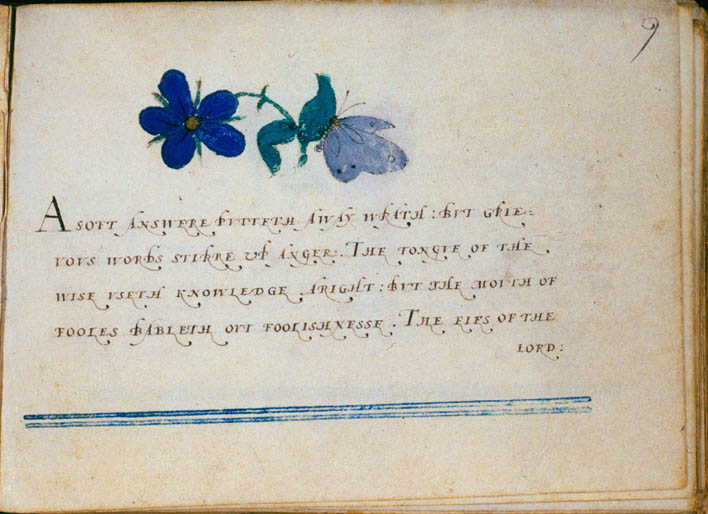 9
A SOFT ANSWERE PUTTETH AWAY WRATH : BUT GRIE=
VOUS WORDS STIRRE UP ANGER . THE TONGUE OF THE
WISE USETH KNOWLEDGE ARIGHT : BUT THE MOUTH OF
FOOLES BABLETH OUT FOOLISHNESSE . THE EIES OF THE
LORD :